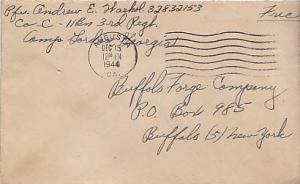 Pfc. Andrew E. Warhol 32832153
Free
Co-C-11Bn 3rd Regt.
Camp Gordon Georgia
AUGUSTA
DEC 15
12 PM
1944
GA.
Buffalo Forge Company
P.O. Box 985
Buffalo (5) New York